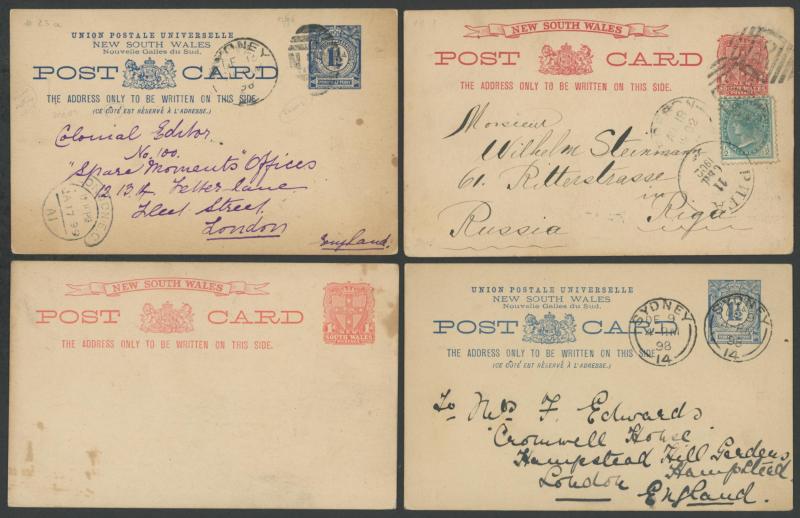 # 23a
UNION POSTALE UNIVERSELLE
NEW SOUTH WALES
Nouvelle Galles du Sud.
POST CARD
THE ADDRESS ONLY TO BE WRITTEN ON THIS SIDE.
(CE CÔTÉ EST RÉSERVÉ À L'ADRESSE.)
SYDNEY
98
1½
Colonial Editor
No. 100.
"Spare Moments" Offices
12 13 &
Fetter lane
Fleet Street
London
England.
LONDON E.C
JA 17 99
A1
NEW SOUTH WALES
POST CARD
THE ADDRESS ONLY TO BE WRITTEN ON THIS SIDE.
SOUTH WALES
11
1902
Monsieur
Wilhelm Steinmann
61. Ritterstrasse
in
Riga
Russia
NEW SOUTH WALES
POST CARD
THE ADDRESS ONLY TO BE WRITTEN ON THIS SIDE.
1D
SOUTH WALES
UNION POSTALE UNIVERSELLE
NEW SOUTH WALES
Nouvelle Galles du Sud.
POST CARD
THE ADDRESS ONLY TO BE WRITTEN ON THIS SIDE.
(CE CÔTÉ EST RÉSERVÉ À L'ADRESSE.)
SYDNEY
DE 9
98
14
SYDNEY
98
14
To Mrs F. Edwards
Cromwell House
Hampstead Hill Gardens
Hampstead
London
England.